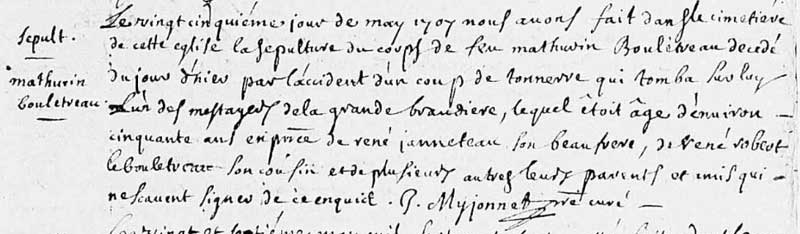 sepult.
mathurin
bouletreau.
Le vingt cinquiéme jour de may 1707 nous avons fait dans le cimetiere
de cette église la sepulture du corps de feu mathurin Bouletreau decedé
du jour d'hier par l'accident d'un coup de tonnerre qui tomba sur luy
L'un des mestayers de la grande brandiere, lequel étoit âge d'environ
cinquante ans en pñce de rené janneteau son beaufrere, de rené robert
le bouletreau son cousin et de plusieurs autres leurs parents et amis qui
ne scavent signer de ce enquis. P. Myionnet ptre curé